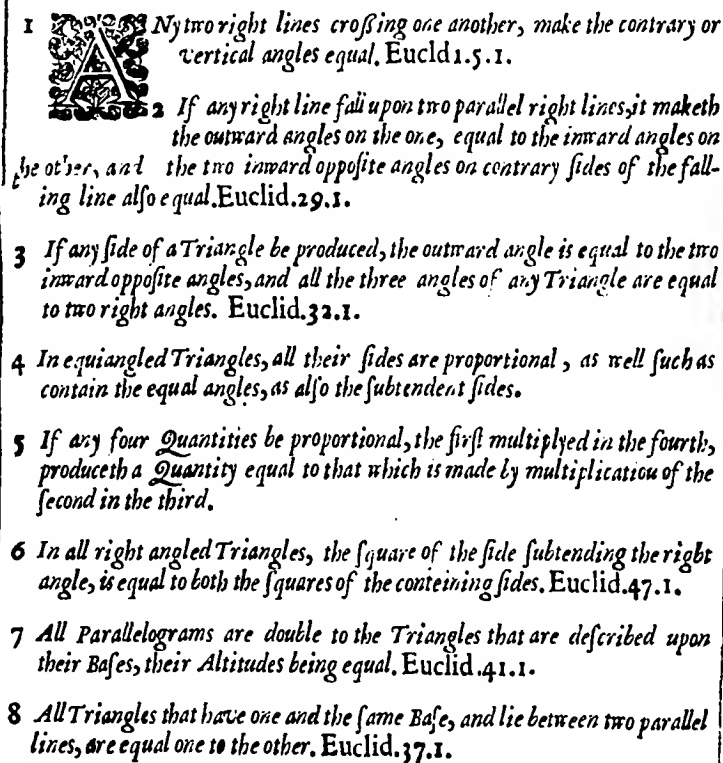 1 ANy two right lines croſſing one another, make the contrary or
vertical angles equal. Eucld 1.5.1.
2 If any right line fall upon two parallel right lines, it maketh
the outward angles on the one, equal to the inward angles on
the other, and the two inward oppoſite angles on contrary ſides of the fall-
ing line alſo equal. Euclid. 29.1.
3 If any ſide of a Triangle be produced, the outward angle is equal to the two
inward oppoſite angles, and all the three angles of any Triangle are equal
to two right angles. Euclid. 32.1.
4 In equiangled Triangles, all their ſides are proportional, as well ſuch as
contain the equal angles, as alſo the ſubtendent ſides.
5 If any four Quantities be proportional, the firſt multiplyed in the fourth,
produceth a Quantity equal to that which is made by multiplication of the
ſecond in the third.
6 In all right angled Triangles, the ſquare of the ſide ſubtending the right
angle, is equal to both the ſquares of the conteining ſides. Euclid. 47.1.
7 All Parallelograms are double to the Triangles that are deſcribed upon
their Baſes, their Altitudes being equal. Euclid. 41.1.
8 All Triangles that have one and the ſame Baſe, and lie between two parallel
lines, are equal one to the other. Euclid. 37.1.